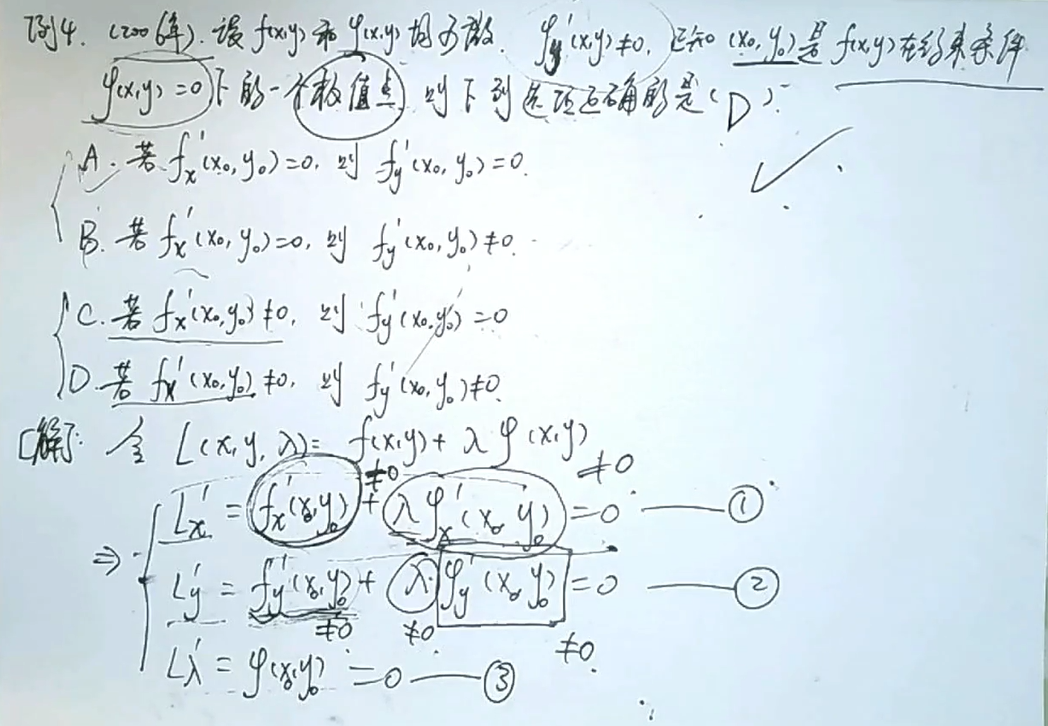 例4. (2006年). 设 f(x,y) 和 φ(x,y) 均可微. φ'y(x,y)≠0, 已知 (x₀,y₀) 是 f(x,y) 在约束条件
φ(x,y)=0 下的一个极值点, 则下列选项正确的是( D ).
A. 若 f'x(x₀,y₀)=0, 则 f'y(x₀,y₀)=0.
B. 若 f'x(x₀,y₀)=0, 则 f'y(x₀,y₀)≠0.
C. 若 f'x(x₀,y₀)≠0, 则 f'y(x₀,y₀)=0
D. 若 f'x(x₀,y₀)≠0, 则 f'y(x₀,y₀)≠0.
[解]: 令 L(x,y,λ)= f(x,y)+λφ(x,y)
≠0 ≠0
⇒ L'x = f'x(x₀,y₀) + λφ'x(x₀,y₀) =0 —— ①
L'y = f'y(x₀,y₀) + λφ'y(x₀,y₀) =0 —— ②
≠0 ≠0 ≠0.
L'λ = φ(x₀,y₀) =0 —— ③